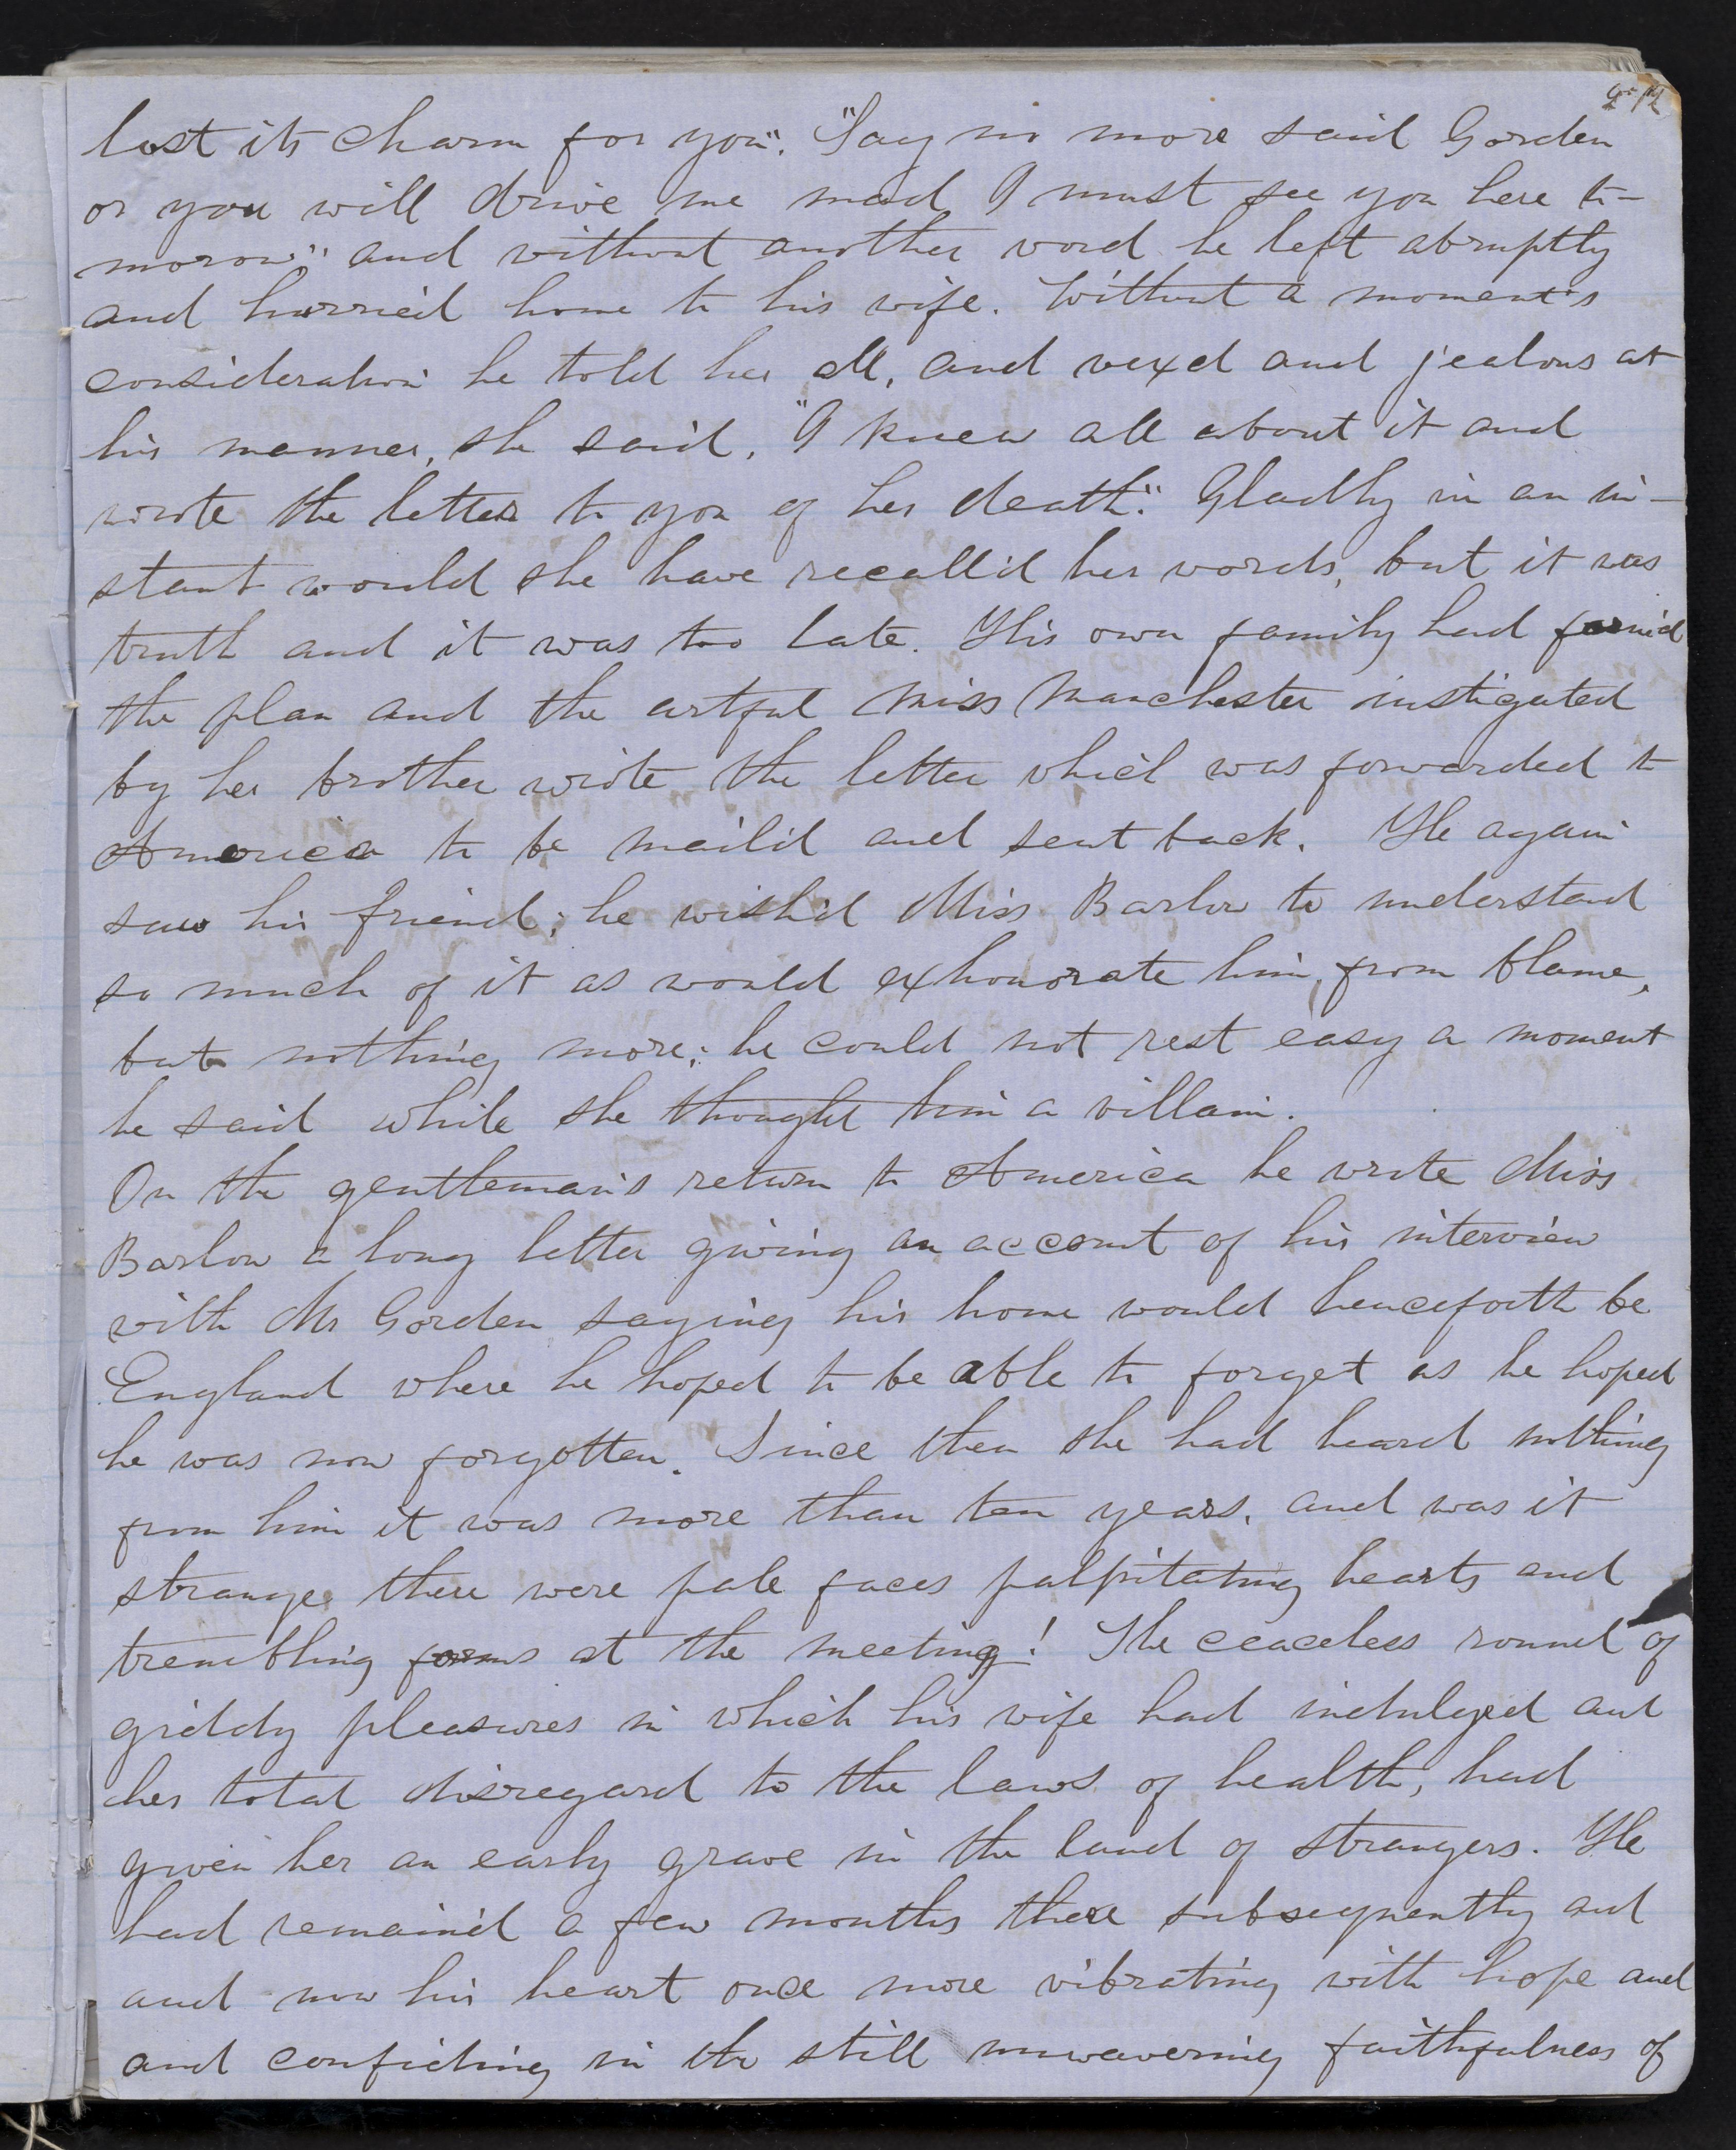 lost its charm for you". "Say no more said Gorden
or you will drive me mad I must see you here to-
morow" and without another word he left abruptly
and hurried home to his wife. Without a moment's
consideration he told her all, and vexd and jealous at
his manner, she said, "I knew all about it and
wrote the letter to you of her death". Gladly in an in-
stant would she have recall'd her words, but it was
truth and it was too late. His own family had form'd
the plan and the artful Miss Manchester instigated
by her brother wrote the letter which was forwarded to
America to be mail'd and sent back. He again
saw his friend; he wish'd Miss Barlow to understand
so much of it as would exhonorate him, from blame,
but nothing more; he could not rest easy a moment
he said while she thought him a villain.
On the gentleman's return to America he wrote Miss
Barlow a long letter giving an account of his interview
with Mr Gorden saying his home would henceforth be
England where he hoped to be able to forget as he hoped
he was now forgotten. Since then she had heard nothing
from him it was more than ten years, and was it
strange there were pale faces palpitating hearts and
trembling forms at the meeting! The ceaceless round of
giddy pleasures in which his wife had indulged and
her total disregard to the laws of health, had
given her an early grave in the land of strangers. He
had remain'd a few months there subsequently and
and now his heart once more vibrating with hope and
and confiding in the still unwavering faithfulness of